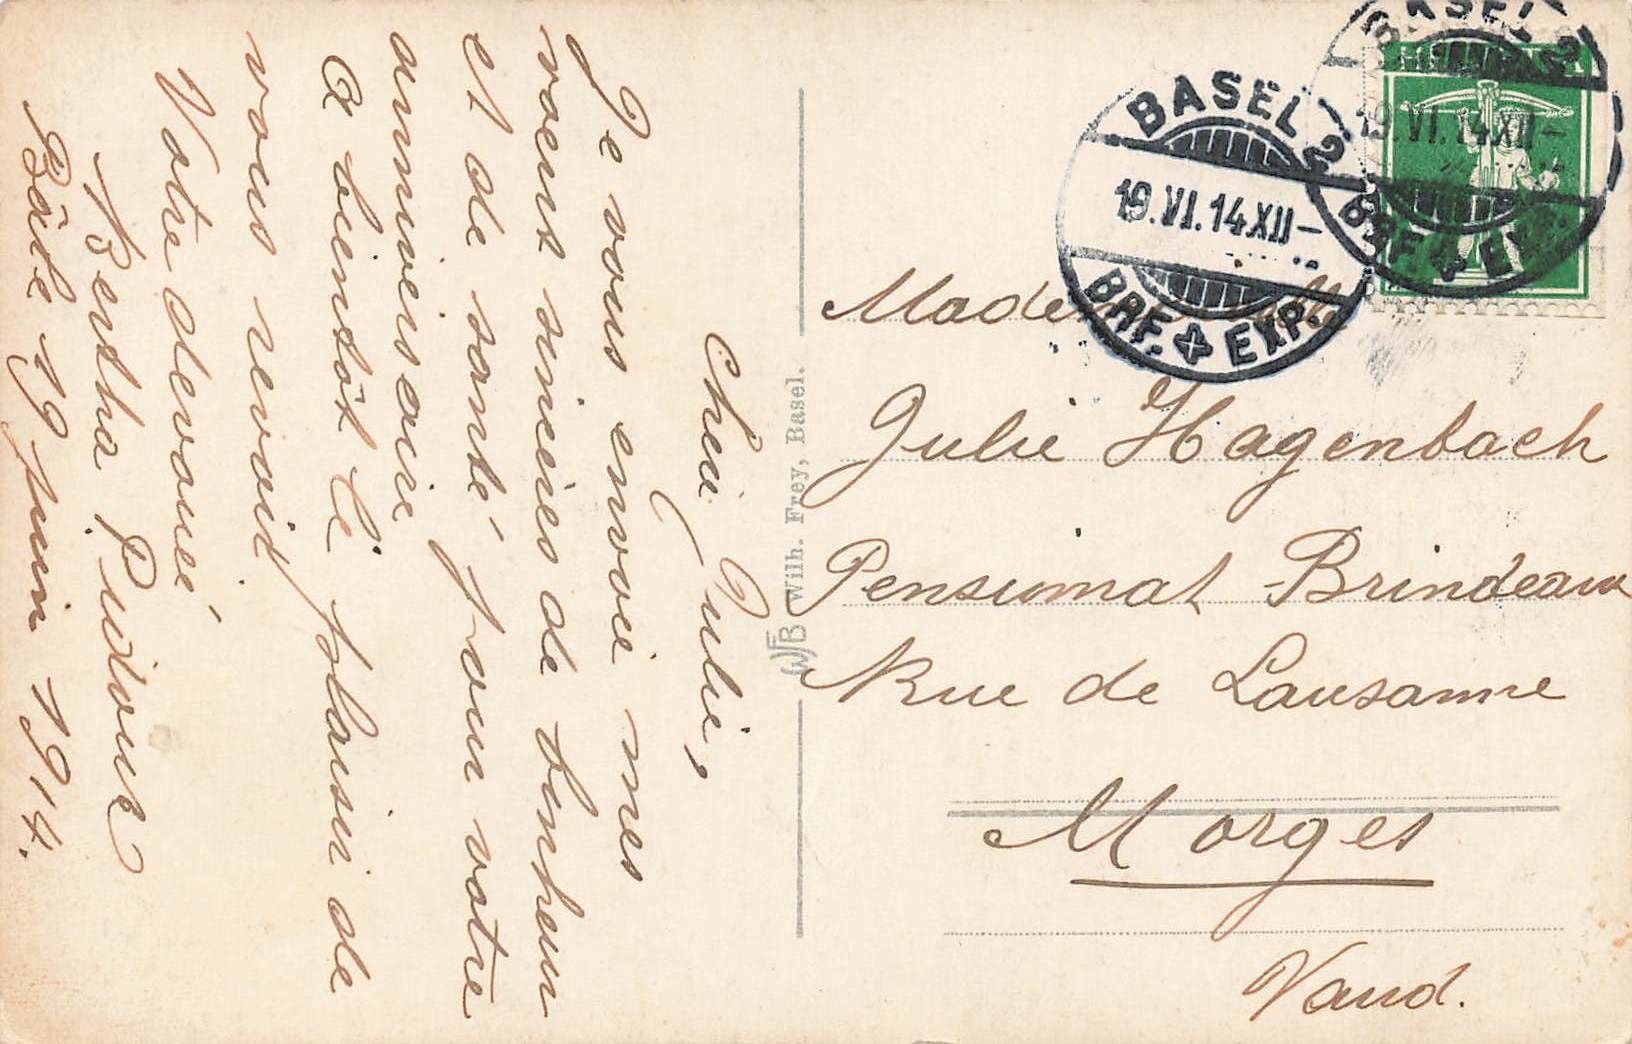 Cheir Julie,
Je vous envoie mes
voeux sincères de bonheur
et de santé pour votre
anniversaire
A bientôt le plaisir de
vous revoir
Votre dévouée
Bertha
Bâle 19 juin 1914.
Wilh. Frey, Basel.
WFB
BASEL 2
19.VI.14 XII–
BRF. EXP.
BASEL 2
19.VI.14 XII–
BRF. EXP.
HELVETIA
Julie Hagenbach
Pensionnat Brindeaux
Rue de Lausanne
Morges
Vaud.